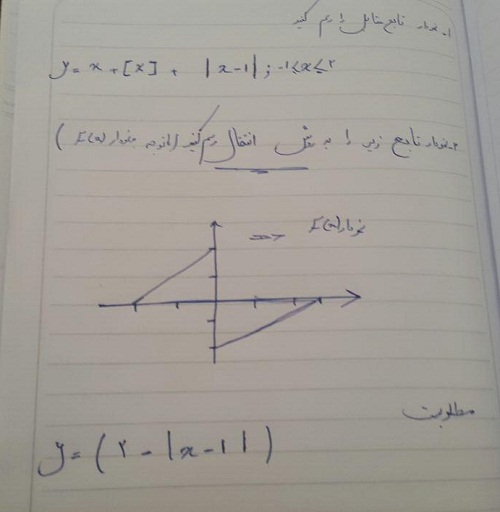 ۱- نمودار تابع مقابل را رسم کنید
y = x + [x] + |x-1| ; -1≤x≤۲
۲- نمودار تابع زیر را به روش انتقال رسم کنید (باتوجه به نمودار f(x))
نمودار f(x)
مطلوبست
y = (۲ - |x-1|)